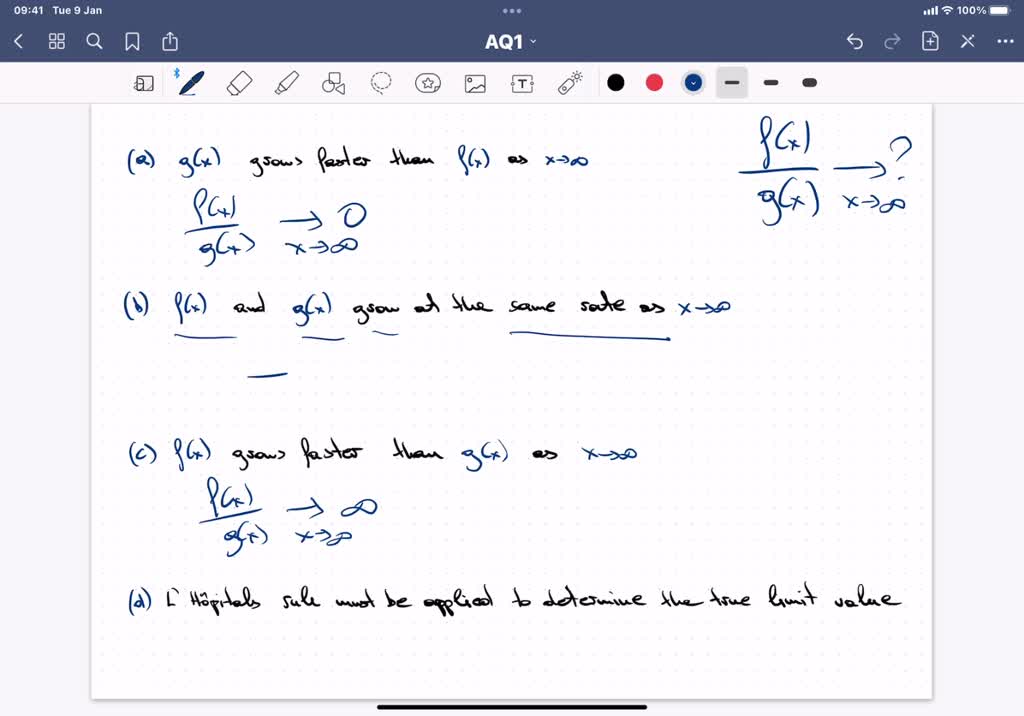 09:41 Tue 9 Jan
100%
AQ1
(a) g(x) grows faster than f(x) as x→∞
f(x)/g(x) → 0
x→∞
f(x)/g(x) → ?
x→∞
(b) f(x) and g(x) grow at the same rate as x→∞
(c) f(x) grows faster than g(x) as x→∞
f(x)/g(x) → ∞
x→∞
(d) L'Hôpitals rule must be applied to determine the true limit value